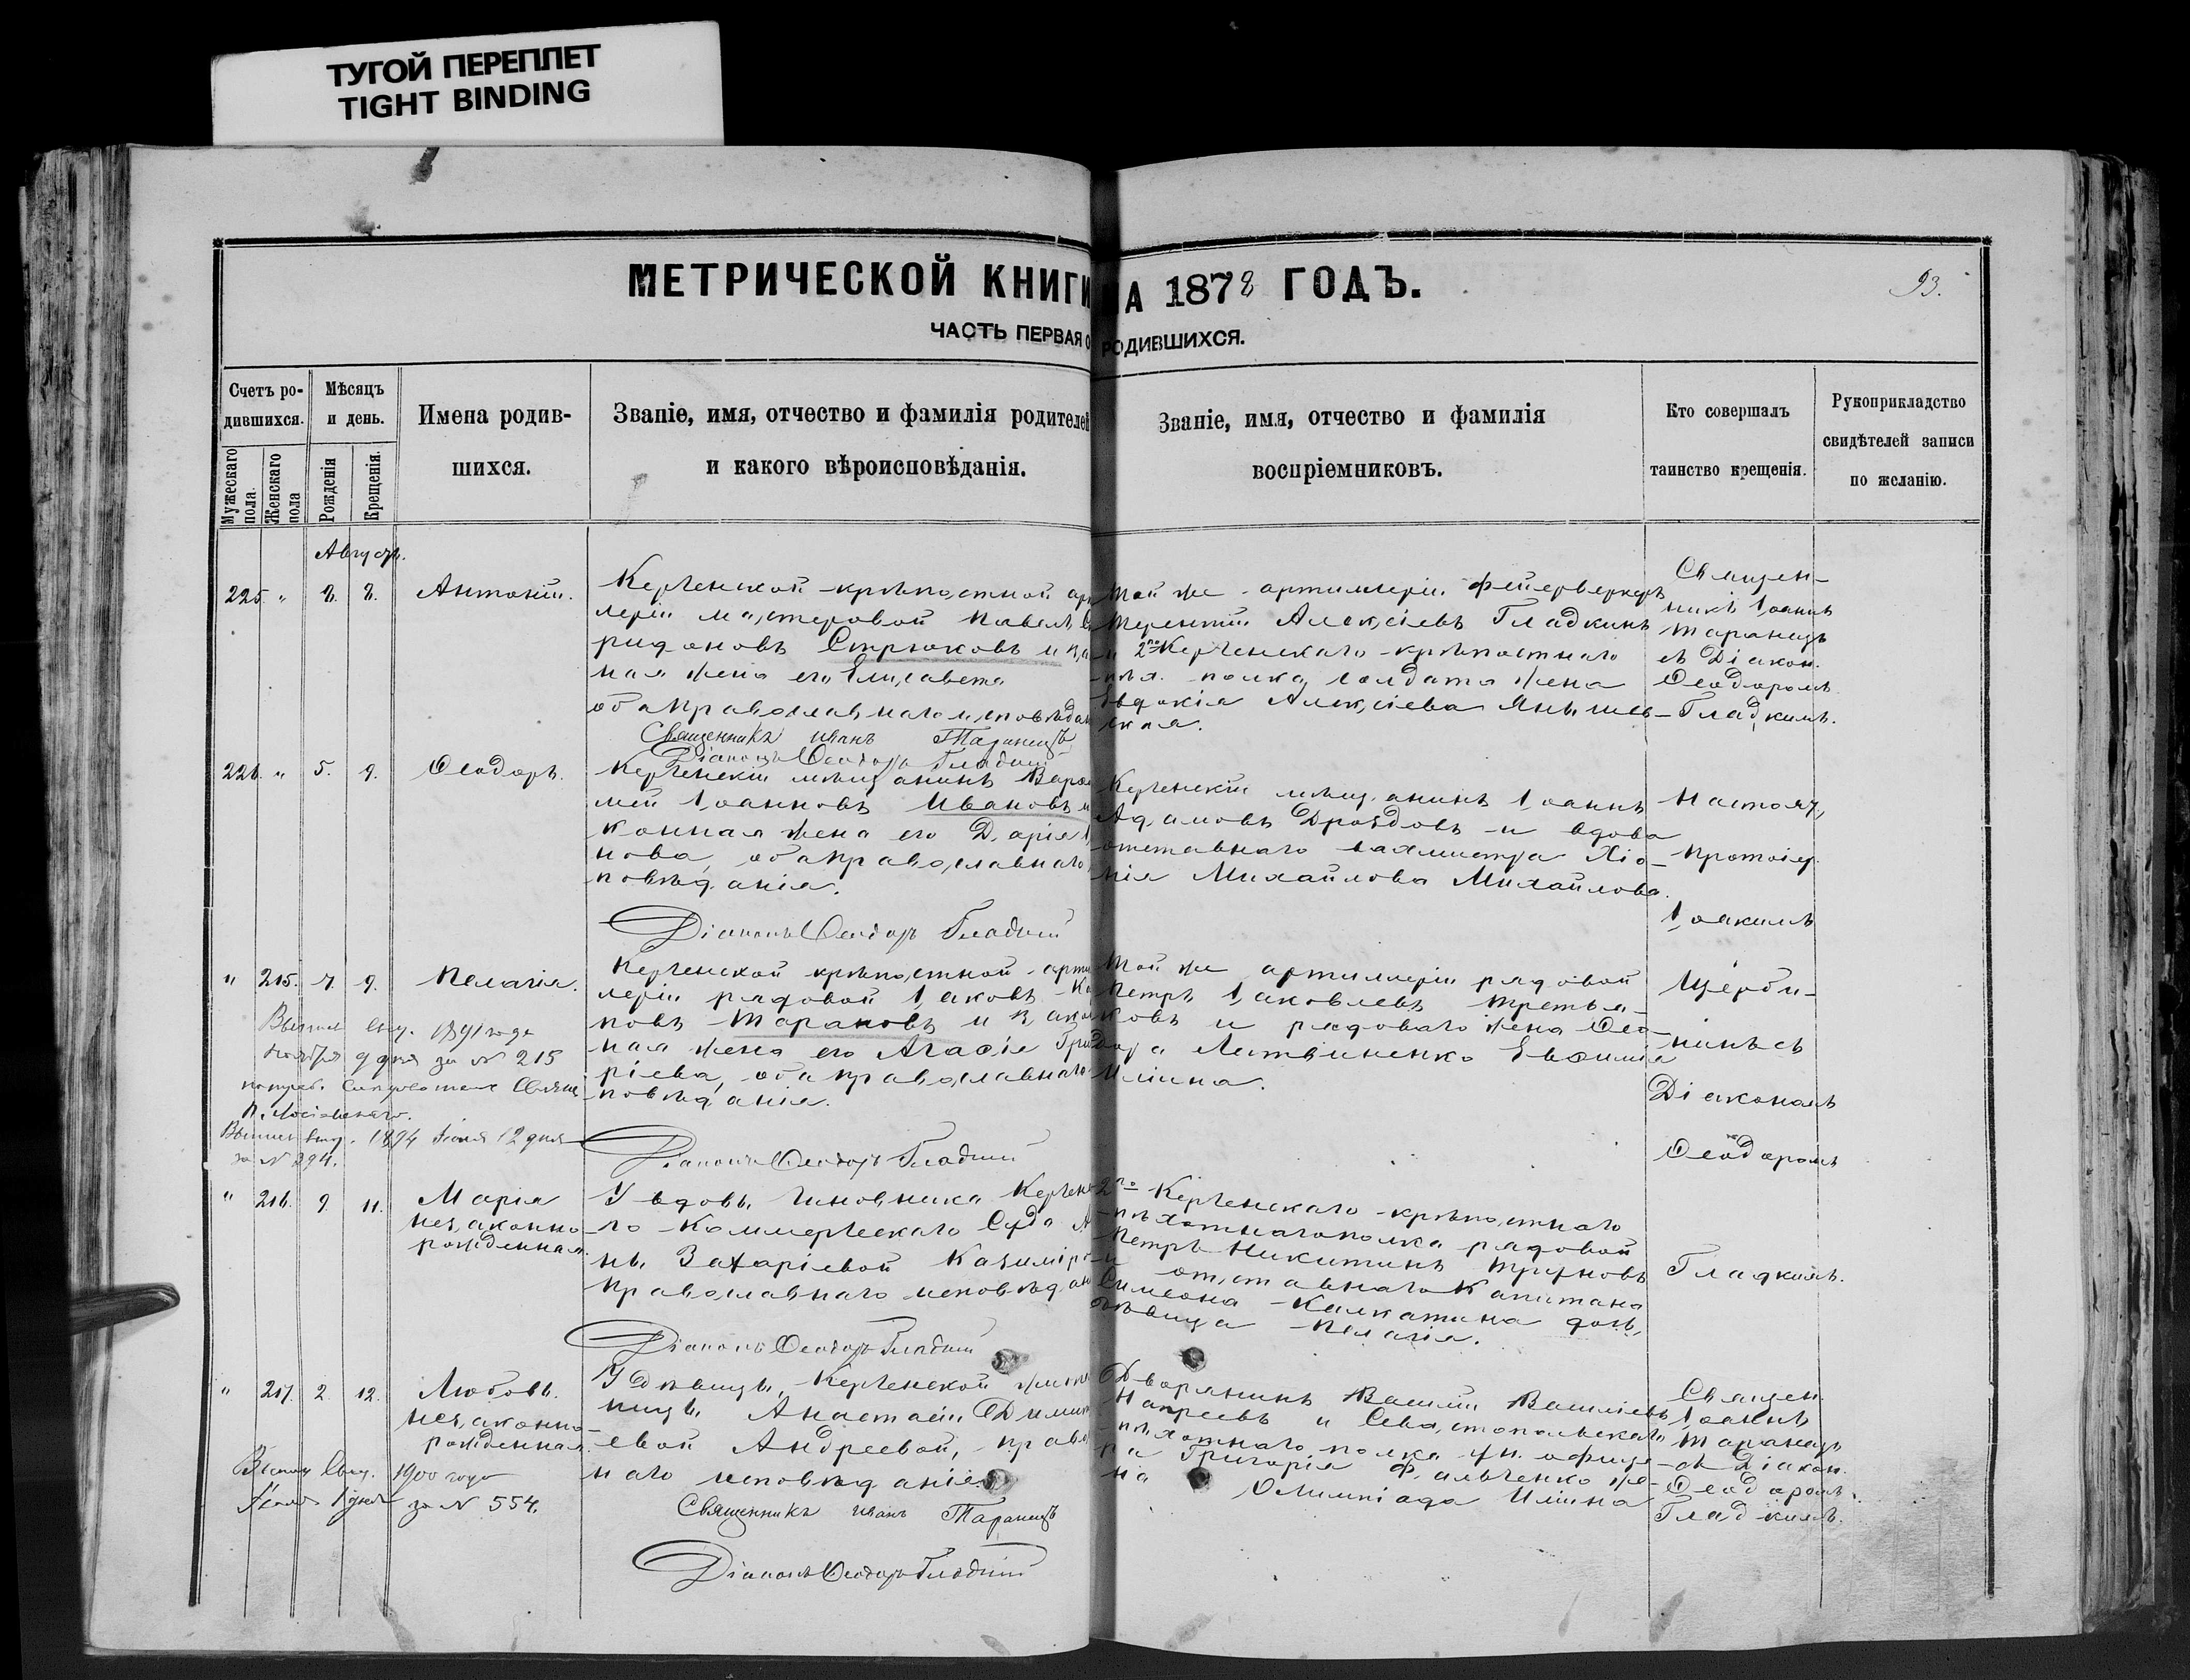 ТУГОЙ ПЕРЕПЛЕТ
TIGHT BINDING
МЕТРИЧЕСКОЙ КНИГИ НА 1872 ГОДЪ.
93.
ЧАСТЬ ПЕРВАЯ О РОДИВШИХСЯ.
Счетъ ро-
дившихся.
Мужескаго пола.
Женскаго пола
Мѣсяцъ
и день.
Рожденія
Крещенія.
Имена родив-
шихся.
Званіе, имя, отчество и фамилія родителей
и какого вѣроисповѣданія.
Званіе, имя, отчество и фамилія
воспріемниковъ.
Кто совершалъ
таинство крещенія.
Рукоприкладство
свидѣтелей записи
по желанію.
Августъ.
225. " 2. 2. Антоній.
Керченской крѣпостной арт
леріи мастеровой Павелъ Сп
ридоновъ Стрюковъ и зако
ная жена его Елисавета
оба православнаго исповѣдан
Священникъ Иванъ Таранецъ
Діаконъ Ѳеодоръ Гладкій
Той же артиллеріи фейерверкеръ
Терентій Алексіевъ Гладкинъ
и 2го Керченскаго крѣпостнаго
полка солдата жена
Евдокія Алексіева Янышев-
ская.
Священ-
никъ Іоаннъ
Таранецъ
съ Діакон.
Ѳеодоромъ
Гладкимъ.
226. " 5. 9. Ѳеодоръ.
Керченскій мѣщанинъ Варѳо
мей Іоанновъ Ивановъ и
конная жена его Дарія
нова, оба православнаго
повѣданія.
Діаконъ Ѳеодоръ Гладкій
Керченскій мѣщанинъ Іоаннъ
Адамовъ Дроздовъ и вдова
отставнаго вахмистра Хіо-
нія Михайлова Михайлова.
Настоят.
Протоіер.
Іоакимъ
Щерби-
нинъ съ
Діакономъ
Ѳеодоромъ
Гладкимъ.
" 215. 7. 9. Пелагія.
Керченской крѣпостной арти
леріи рядовой Іаковъ Ка
повъ Тарановъ и зако
ная жена его Агаѳія Григо
ріева, оба православнаго
повѣданія.
Діаконъ Ѳеодоръ Гладкій
Той же артиллеріи рядовой
Петръ Іаковлевъ Третья-
ковъ и рядоваго жена Ѳео-
дора Литвиненко Евѳимія
Ильина.
1891 года
Ноября 9 дня за № 215
1894 Іюня 12 дня
за № 394.
" 216. 9. 11. Марія
незаконно
рожденная.
У вдовы чиновника Керчен
го Коммерческаго Суда А
ны Захаріевой Казиміро
православнаго исповѣдан
Діаконъ Ѳеодоръ Гладкій
2го Керченскаго крѣпостнаго
пѣхотнаго полка рядовой
Петръ Никитинъ Труновъ
и отставнаго Капитана
Симеона Калкатина дочь,
дѣвица Пелагія.
" 217. 2. 12. Любовь.
незаконно
рожденная.
У дѣвицы, Керченской жител
ницы Анастасіи Димит
евой Андреевой, правос
наго исповѣданія.
Священникъ Иванъ Таранецъ
Діаконъ Ѳеодоръ Гладкій
Дворянинъ Василій Василіевъ
и Севастопольскаго
пѣхотнаго полка ун. офице-
ра Григорія Фальченко же-
на Олимпіада Ильина
Священ.
Іоаннъ
Таранецъ
съ Діакон.
Ѳеодоромъ
Гладкимъ.
1900 года
Іюля 1 дня за № 554.